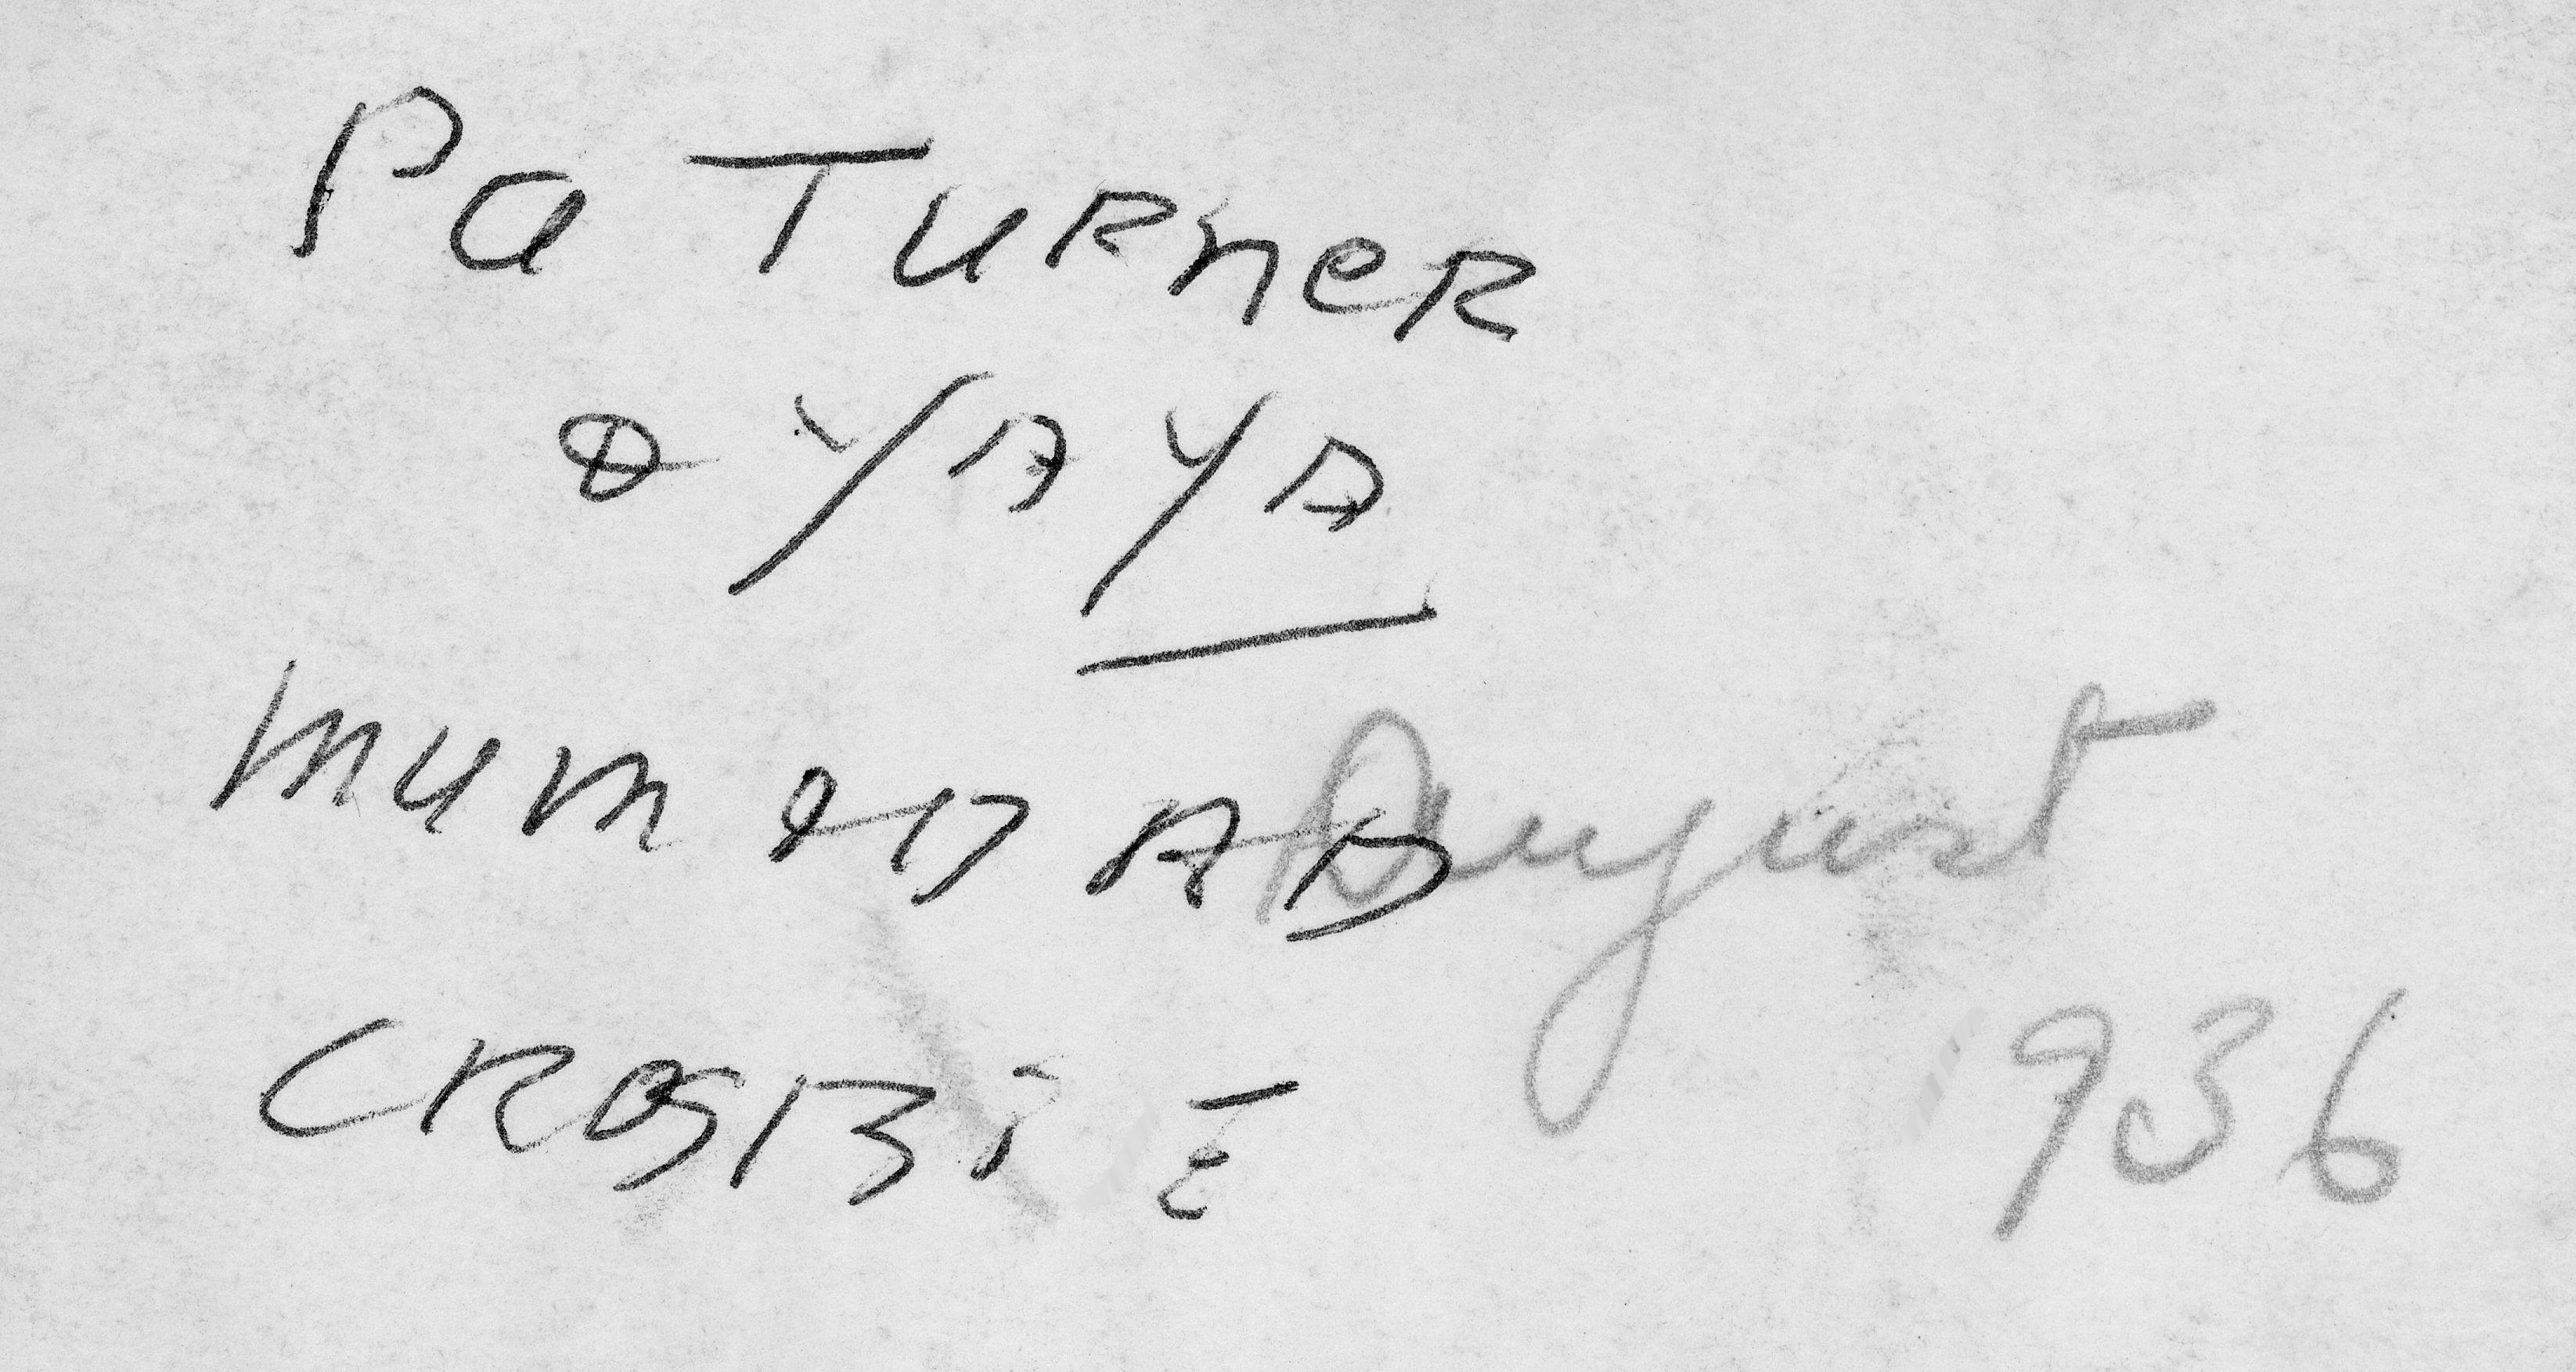 Pa TURNER
& YAYA
MUM & DAD
August
936
CROSBiE